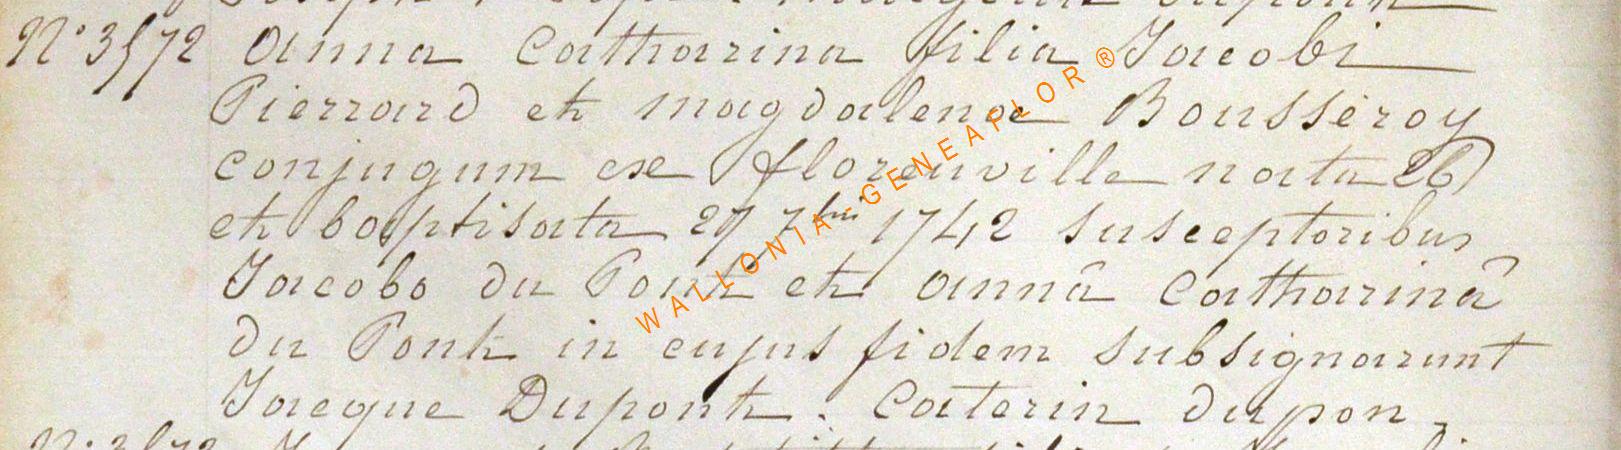 N° 35/72 Anna Catharina filia Jacobi
Pierrard et Magdalenae Bousseroy
conjugum ex florenville nata 26
et baptisata 27 7bri 1742 susceptoribus
Jacobo du Pont et annâ Catharinâ
du Pont in cujus fidem subsignarunt
Jacque Dupont. Caterin dupon
WALLONIA-GENEAFLOR ®